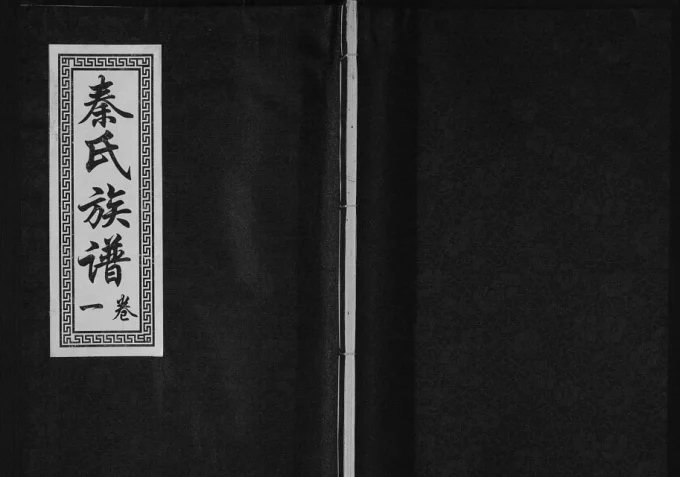 秦氏族谱
卷一